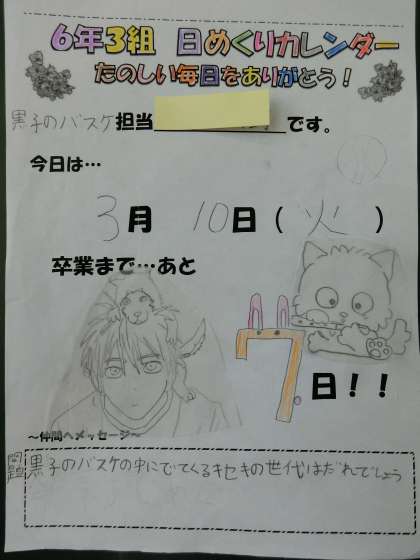 6年3組 日めくりカレンダー
たのしい毎日をありがとう！
黒子のバスケ担当 です。
今日は…
3月 10日（火）
卒業まで…あと
7日！！
～仲間へメッセージ～
問題 黒子のバスケの中にでてくるキセキの世代はだれでしょう